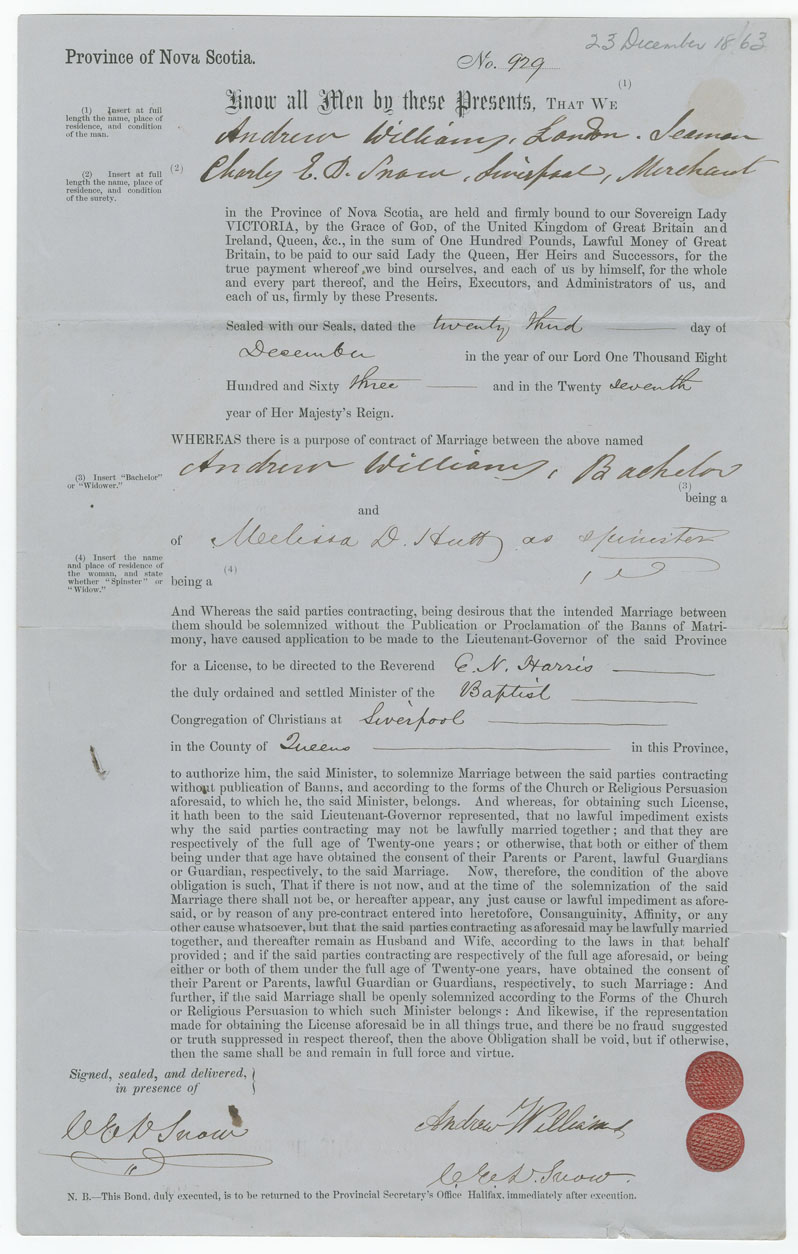 23 December 1863
Province of Nova Scotia.
No. 929
(1)
Know all Men by these Presents, THAT WE
(1) Insert at full
length the name, place of
residence, and condition
of the man.
Andrew Williams, London. Seaman
(2) Insert at full
length the name, place of
residence, and condition
of the surety.
(2)
Charles E. D. Snow, Liverpool, Merchant
in the Province of Nova Scotia, are held and firmly bound to our Sovereign Lady
VICTORIA, by the Grace of GOD, of the United Kingdom of Great Britain and
Ireland, Queen, &c., in the sum of One Hundred Pounds, Lawful Money of Great
Britain, to be paid to our said Lady the Queen, Her Heirs and Successors, for the
true payment whereof we bind ourselves, and each of us by himself, for the whole
and every part thereof, and the Heirs, Executors, and Administrators of us, and
each of us, firmly by these Presents.
Sealed with our Seals, dated the twenty third day of
December in the year of our Lord One Thousand Eight
Hundred and Sixty three and in the Twenty seventh
year of Her Majesty's Reign.
WHEREAS there is a purpose of contract of Marriage between the above named
Andrew Williams, Bachelor
(3) Insert "Bachelor"
or "Widower."
(3)
being a
and
of Melissa D. Hutt as spinister
(4) Insert the name
and place of residence of
the woman, and state
whether "Spinster" or
"Widow."
(4)
being a
And Whereas the said parties contracting, being desirous that the intended Marriage between
them should be solemnized without the Publication or Proclamation of the Banns of Matri-
mony, have caused application to be made to the Lieutenant-Governor of the said Province
for a License, to be directed to the Reverend E. N. Harris
the duly ordained and settled Minister of the Baptist
Congregation of Christians at Liverpool
in the County of Queens in this Province,
to authorize him, the said Minister, to solemnize Marriage between the said parties contracting
without publication of Banns, and according to the forms of the Church or Religious Persuasion
aforesaid, to which he, the said Minister, belongs. And whereas, for obtaining such License,
it hath been to the said Lieutenant-Governor represented, that no lawful impediment exists
why the said parties contracting may not be lawfully married together; and that they are
respectively of the full age of Twenty-one years; or otherwise, that both or either of them
being under that age have obtained the consent of their Parents or Parent, lawful Guardians
or Guardian, respectively, to the said Marriage. Now, therefore, the condition of the above
obligation is such, That if there is not now, and at the time of the solemnization of the said
Marriage there shall not be, or hereafter appear, any just cause or lawful impediment as afore-
said, or by reason of any pre-contract entered into heretofore, Consanguinity, Affinity, or any
other cause whatsoever, but that the said parties contracting as aforesaid may be lawfully married
together, and thereafter remain as Husband and Wife, according to the laws in that behalf
provided; and if the said parties contracting are respectively of the full age aforesaid, or being
either or both of them under the full age of Twenty-one years, have obtained the consent of
their Parent or Parents, lawful Guardian or Guardians, respectively, to such Marriage: And
further, if the said Marriage shall be openly solemnized according to the Forms of the Church
or Religious Persuasion to which such Minister belongs: And likewise, if the representation
made for obtaining the License aforesaid be in all things true, and there be no fraud suggested
or truth suppressed in respect thereof, then the above Obligation shall be void, but if otherwise,
then the same shall be and remain in full force and virtue.
Signed, sealed, and delivered,
in presence of
C E D Snow
Andrew Williams
C. E. D. Snow.
N. B.—This Bond, duly executed, is to be returned to the Provincial Secretary's Office Halifax, immediately after execution.